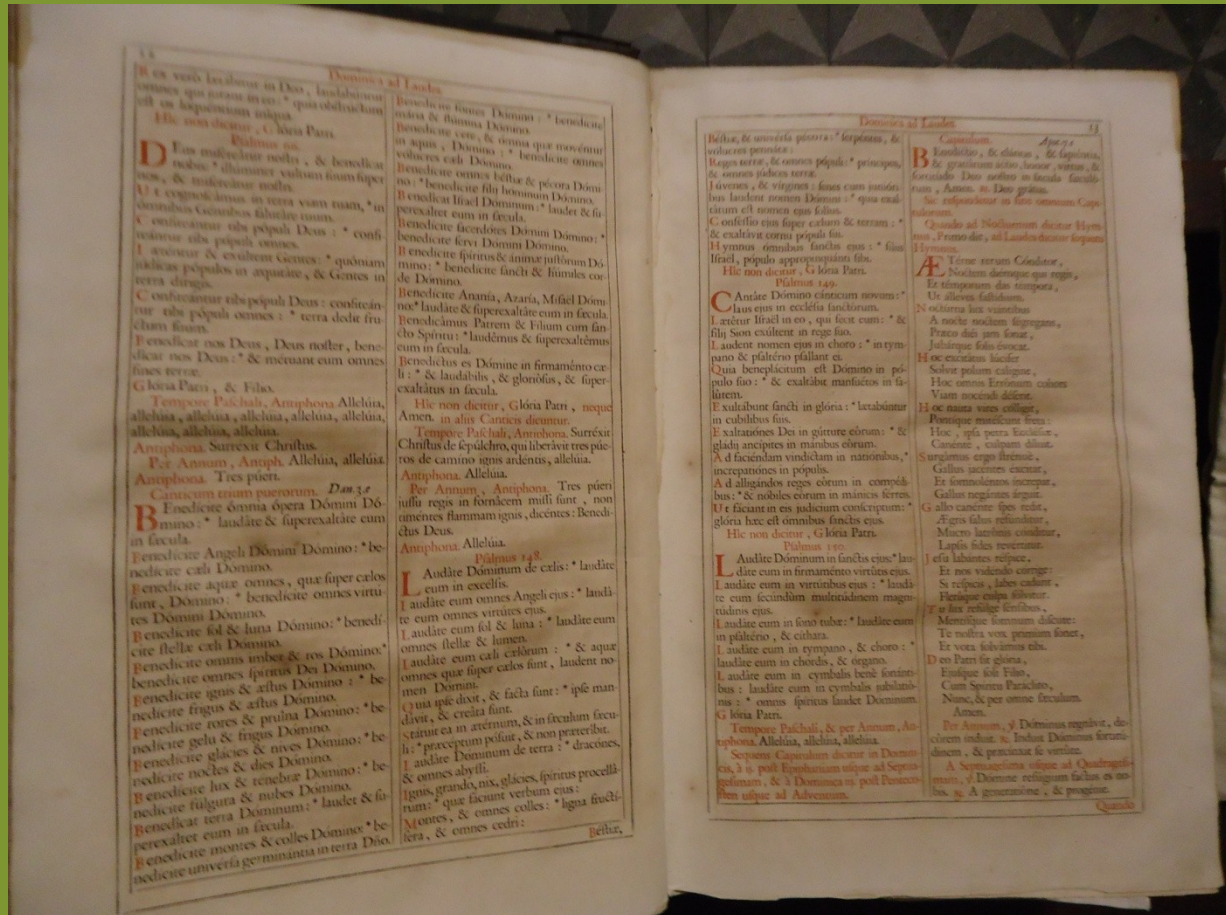 Dominica ad Laudes
Rex verò lætabitur in Deo, laudabuntur
omnes qui jurant in eo: * quia obstructum
est os loquentium iniqua.
Hic non dicitur, Glória Patri.
Psalmus 66.
DEus misereátur nostri, & benedícat
nobis: * illúminet vultum suum super
nos, & misereátur nostri.
Ut cognoscámus in terra viam tuam, * in
ómnibus Géntibus salutáre tuum.
Confiteántur tibi pópuli Deus: * confi-
teántur tibi pópuli omnes.
Læténtur & exúltent Gentes: * quóniam
júdicas pópulos in æquitáte, & Gentes in
terra dírigis.
Confiteántur tibi pópuli Deus: confiteán-
tur tibi pópuli omnes: * terra dedit fru-
ctum suum.
Benedícat nos Deus, Deus noster, bene-
dícat nos Deus: * & métuant eum omnes
fines terræ.
Glória Patri, & Filio.
Tempore Paschali, Antiphona Allelúia,
allelúia, allelúia, allelúia, allelúia, allelúia,
allelúia, allelúia, allelúia.
Antiphona. Surréxit Christus.
Per Annum, Antiph. Allelúia, allelúia.
Antiphona. Tres púeri.
Canticum trium puerorum. Dan.3.e
BEnedícite ómnia ópera Dómini Dó-
mino: * laudáte & superexaltáte eum
in sæcula.
Benedícite Angeli Dómini Dómino: * be-
nedícite cæli Dómino.
Benedícite aquæ omnes, quæ super cælos
sunt, Dómino: * benedícite omnes virtú-
tes Dómini Dómino.
Benedícite sol & luna Dómino: * benedí-
cite stellæ cæli Dómino.
Benedícite omnis imber & ros Dómino: *
benedícite omnes spíritus Dei Dómino.
Benedícite ignis & æstus Dómino: * be-
nedícite frigus & æstus Dómino.
Benedícite rores & pruína Dómino: * be-
nedícite gelu & frigus Dómino.
Benedícite glácies & nives Dómino: * be-
nedícite noctes & dies Dómino.
Benedícite lux & ténebræ Dómino: * be-
nedícite fúlgura & nubes Dómino.
Benedícat terra Dóminum: * laudet & su-
perexáltet eum in sæcula.
Benedícite montes & colles Dómino: * be-
nedícite univérsa germinántia in terra Dño.
Benedícite fontes Dómino: * benedícite
mária & flúmina Dómino.
Benedícite cete, & ómnia quæ movéntur
in aquis, Dómino: * benedícite omnes
vólucres cæli Dómino.
Benedícite omnes béstiæ & pécora Dómi-
no: * benedícite fílij hóminum Dómino.
Benedícat Israël Dóminum: * laudet & su-
perexáltet eum in sæcula.
Benedícite sacerdótes Dómini Dómino: *
benedícite servi Dómini Dómino.
Benedícite spíritus & ánimæ justórum Dó-
mino: * benedícite sancti & húmiles cor-
de Dómino.
Benedícite Ananía, Azaría, Mísaël Dómi-
no: * laudáte & superexaltáte eum in sæcula.
Benedicámus Patrem & Fílium cum san-
cto Spíritu: * laudémus & superexaltémus
eum in sæcula.
Benedíctus es Dómine in firmaménto cæ-
li: * & laudábilis, & gloriósus, & super-
exaltátus in sæcula.
Hic non dicitur, Glória Patri, neque
Amen. in aliis Canticis dicuntur.
Tempore Paschali, Antiphona. Surréxit
Christus de sepúlchro, qui liberávit tres púe-
ros de camíno ignis ardéntis, allelúia.
Antiphona. Allelúia.
Per Annum, Antiphona. Tres púeri
jussu regis in fornácem missi sunt, non
timéntes flammam ignis, dicéntes: Benedí-
ctus Deus.
Antiphona. Allelúia.
Psalmus 148.
LAudáte Dóminum de cælis: * laudáte
eum in excélsis.
Laudáte eum omnes Angeli ejus: * laudá-
te eum omnes virtútes ejus.
Laudáte eum sol & luna: * laudáte eum
omnes stellæ & lumen.
Laudáte eum cæli cælórum: * & aquæ
omnes quæ super cælos sunt, laudent no-
men Dómini.
Quia ipse dixit, & facta sunt: * ipse man-
dávit, & creáta sunt.
Státuit ea in ætérnum, & in sæculum sæcu-
li: * præcéptum pósuit, & non præteríbit.
Laudáte Dóminum de terra: * dracónes,
& omnes abýssi.
Ignis, grando, nix, glácies, spíritus procellá-
rum: * quæ fáciunt verbum ejus:
Montes, & omnes colles: * ligna fructí-
fera, & omnes cedri:
Béstiæ,
Dominica ad Laudes. 13
Béstiæ, & univérsa pécora: * serpéntes, &
vólucres pennátæ:
Reges terræ, & omnes pópuli: * príncipes,
& omnes júdices terræ.
Júvenes, & vírgines: senes cum junióri-
bus laudent nomen Dómini: * quia exal-
tátum est nomen ejus solíus.
Conféssio ejus super cælum & terram: *
& exaltávit cornu pópuli sui.
Hymnus ómnibus sanctis ejus: * fíliis
Israël, pópulo appropinquánti sibi.
Hic non dicitur, Glória Patri.
Psalmus 149.
CAntáte Dómino cánticum novum: *
laus ejus in ecclésia sanctórum.
Lætétur Israël in eo, qui fecit eum: * &
fílij Sion exúltent in rege suo.
Laudent nomen ejus in choro: * in tým-
pano & psaltério psallant ei.
Quia beneplácitum est Dómino in pó-
pulo suo: * & exaltábit mansuétos in sa-
lútem.
Exultábunt sancti in glória: * lætabúntur
in cubílibus suis.
Exaltatiónes Dei in gútture eórum: * &
gládij ancípites in mánibus eórum.
Ad faciéndam vindíctam in natiónibus, *
increpatiónes in pópulis.
Ad alligándos reges eórum in compédi-
bus: * & nóbiles eórum in mánicis férreis.
Ut fáciant in eis judícium conscríptum: *
glória hæc est ómnibus sanctis ejus.
Hic non dicitur, Glória Patri.
Psalmus 150.
LAudáte Dóminum in sanctis ejus: * lau-
dáte eum in firmaménto virtútis ejus.
Laudáte eum in virtútibus ejus: * laudá-
te eum secúndùm multitúdinem magni-
túdinis ejus.
Laudáte eum in sono tubæ: * laudáte eum
in psaltério, & cíthara.
Laudáte eum in týmpano, & choro: *
laudáte eum in chordis, & órgano.
Laudáte eum in cýmbalis benè sonánti-
bus: laudáte eum in cýmbalis jubilatió-
nis: * omnis spíritus laudet Dóminum.
Glória Patri.
Tempore Paschali, & per Annum, An-
tiphona. Allelúia, allelúia, allelúia.
Sequens Capitulum dicitur in Domini-
cis, à ij. post Epiphaniam usque ad Septua-
gesimam, & à Dominica iij. post Penteco-
sten usque ad Adventum.
Capitulum. Apoc.7.c
BEnedíctio, & cláritas, & sapiéntia,
& gratiárum áctio, honor, virtus, &
fortitúdo Deo nostro in sæcula sæculó-
rum, Amen. ℟. Deo grátias.
Sic respondetur in fine omnium Capi-
tulorum.
Quando ad Nocturnum dicitur Hym-
nus, Primo die, ad Laudes dicitur sequens
Hymnus.
ÆTérne rerum Cónditor,
Noctem diémque qui regis,
Et témporum das témpora,
Ut álleves fastídium.
Noctúrna lux viántibus
A nocte noctem ségregans,
Præco diéi jam sonat,
Jubárque solis évocat.
Hoc excitátus lúcifer
Solvit polum calígine,
Hoc omnis Errónum cohors
Viam nocéndi déserit.
Hoc nauta vires cólligit,
Pontíque mitéscunt freta:
Hoc, ipsa petra Ecclésiæ,
Canénte, culpam díluit.
Surgámus ergo strénuè,
Gallus jacéntes éxcitat,
Et somnoléntos íncrepat,
Gallus negántes árguit.
Gallo canénte spes redit,
Ægris salus refúnditur,
Mucro latrónis cónditur,
Lapsis fides revértitur.
Jesu labántes réspice,
Et nos vidéndo córrige:
Si réspicis, labes cadunt,
Fletúque culpa sólvitur.
Tu lux refúlge sénsibus,
Mentísque somnum díscute:
Te nostra vox primùm sonet,
Et vota solvámus tibi.
Deo Patri sit glória,
Ejúsque soli Fílio,
Cum Spíritu Paráclito,
Nunc, & per omne sæculum.
Amen.
Per Annum, ℣. Dóminus regnávit, de-
córem índuit. ℟. Induit Dóminus fortitú-
dinem, & præcínxit se virtúte.
A Septuagesima usque ad Quadragesi-
mam, ℣. Dómine refúgium factus es no-
bis. ℟. A generatióne, & progénie.
Quando